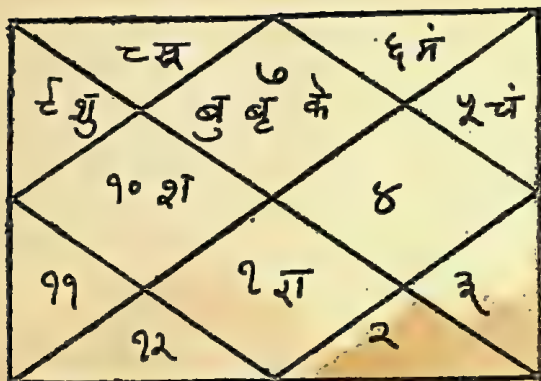 ८ सू ६ मं
७
९ शु बु बृ के ५ चं
१० श ४
११ १ रा ३
१२ २